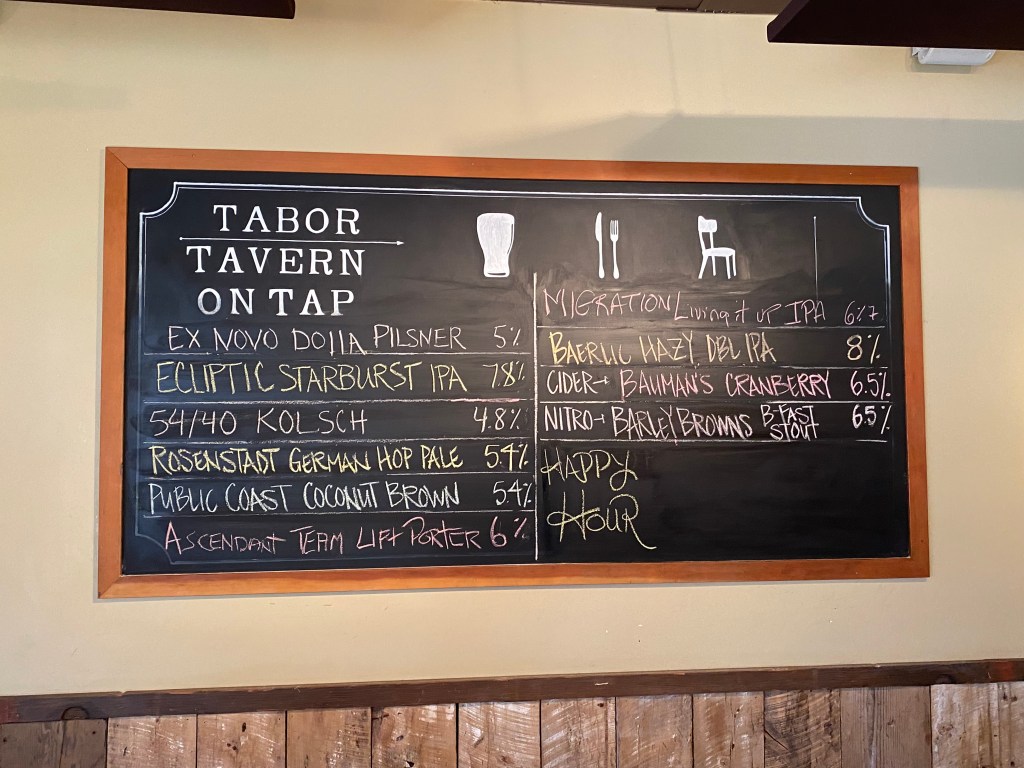 TABOR
TAVERN
ON TAP
EX NOVO DOllA PILSNER 5%
ECLIPTIC STARBURST IPA 7.8%
54/40 KOLSCH 4.8%
ROSENSTADT GERMAN HOP PALE 5.4%
PUBLIC COAST COCONUT BROWN 5.4%
ASCENDANT TEAM LIFT PORTER 6%
MIGRATION Living it UP IPA 6%
BAERLIC HAZY DBL IPA 8%
CIDER→ BAUMAN'S CRANBERRY 6.5%
NITRO→ BARLEY BROWNS B-FAST STOUT 6.5%
HAPPY
HOUR